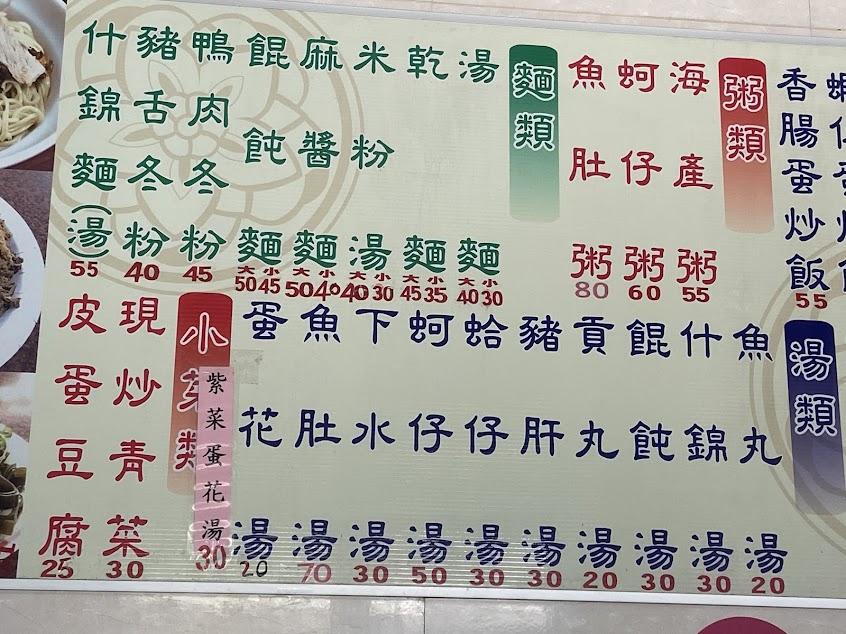 粥類
海產粥 55
蚵仔粥 60
魚肚粥 80
麵類
湯麵 大40 小30
乾麵 大45 小35
米粉湯 大40 小30
麻醬麵 大50 小40
餛飩麵 大50 小45
鴨肉冬粉 45
豬舌冬粉 40
什錦麵(湯) 55
香腸蛋炒飯 55
湯類
魚丸湯 20
什錦湯 30
餛飩湯 30
貢丸湯 20
豬肝湯 30
蛤仔湯 30
蚵仔湯 50
下水湯 30
魚肚湯 70
蛋花湯 20
紫菜蛋花湯 30
小菜類
現炒青菜 30
皮蛋豆腐 25